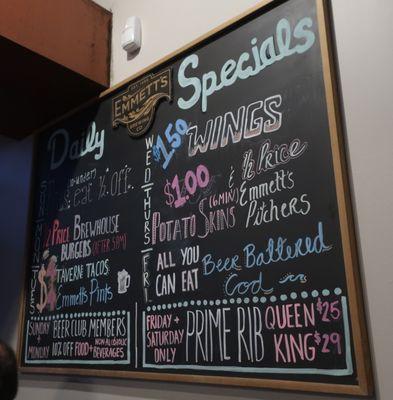 Daily Specials
EMMETT'S
BREWING
CO
SUN
eat ½ off
MON
½ PRICE BREWHOUSE
BURGERS (AFTER 5PM)
TUES
TAVERNE TACOS
Emmetts Pints
WED
$1.50 WINGS
THURS
$1.00
POTATO SKINS (6 MIN)
& ½ PRICE
Emmett's
Pitchers
FRI
ALL YOU
CAN EAT
Beer Battered
Cod
SUNDAY +
MONDAY
BEER CLUB MEMBERS
10% OFF FOOD + NON-ALCOHOLIC
BEVERAGES
FRIDAY +
SATURDAY
ONLY
PRIME RIB
QUEEN $25
KING $29